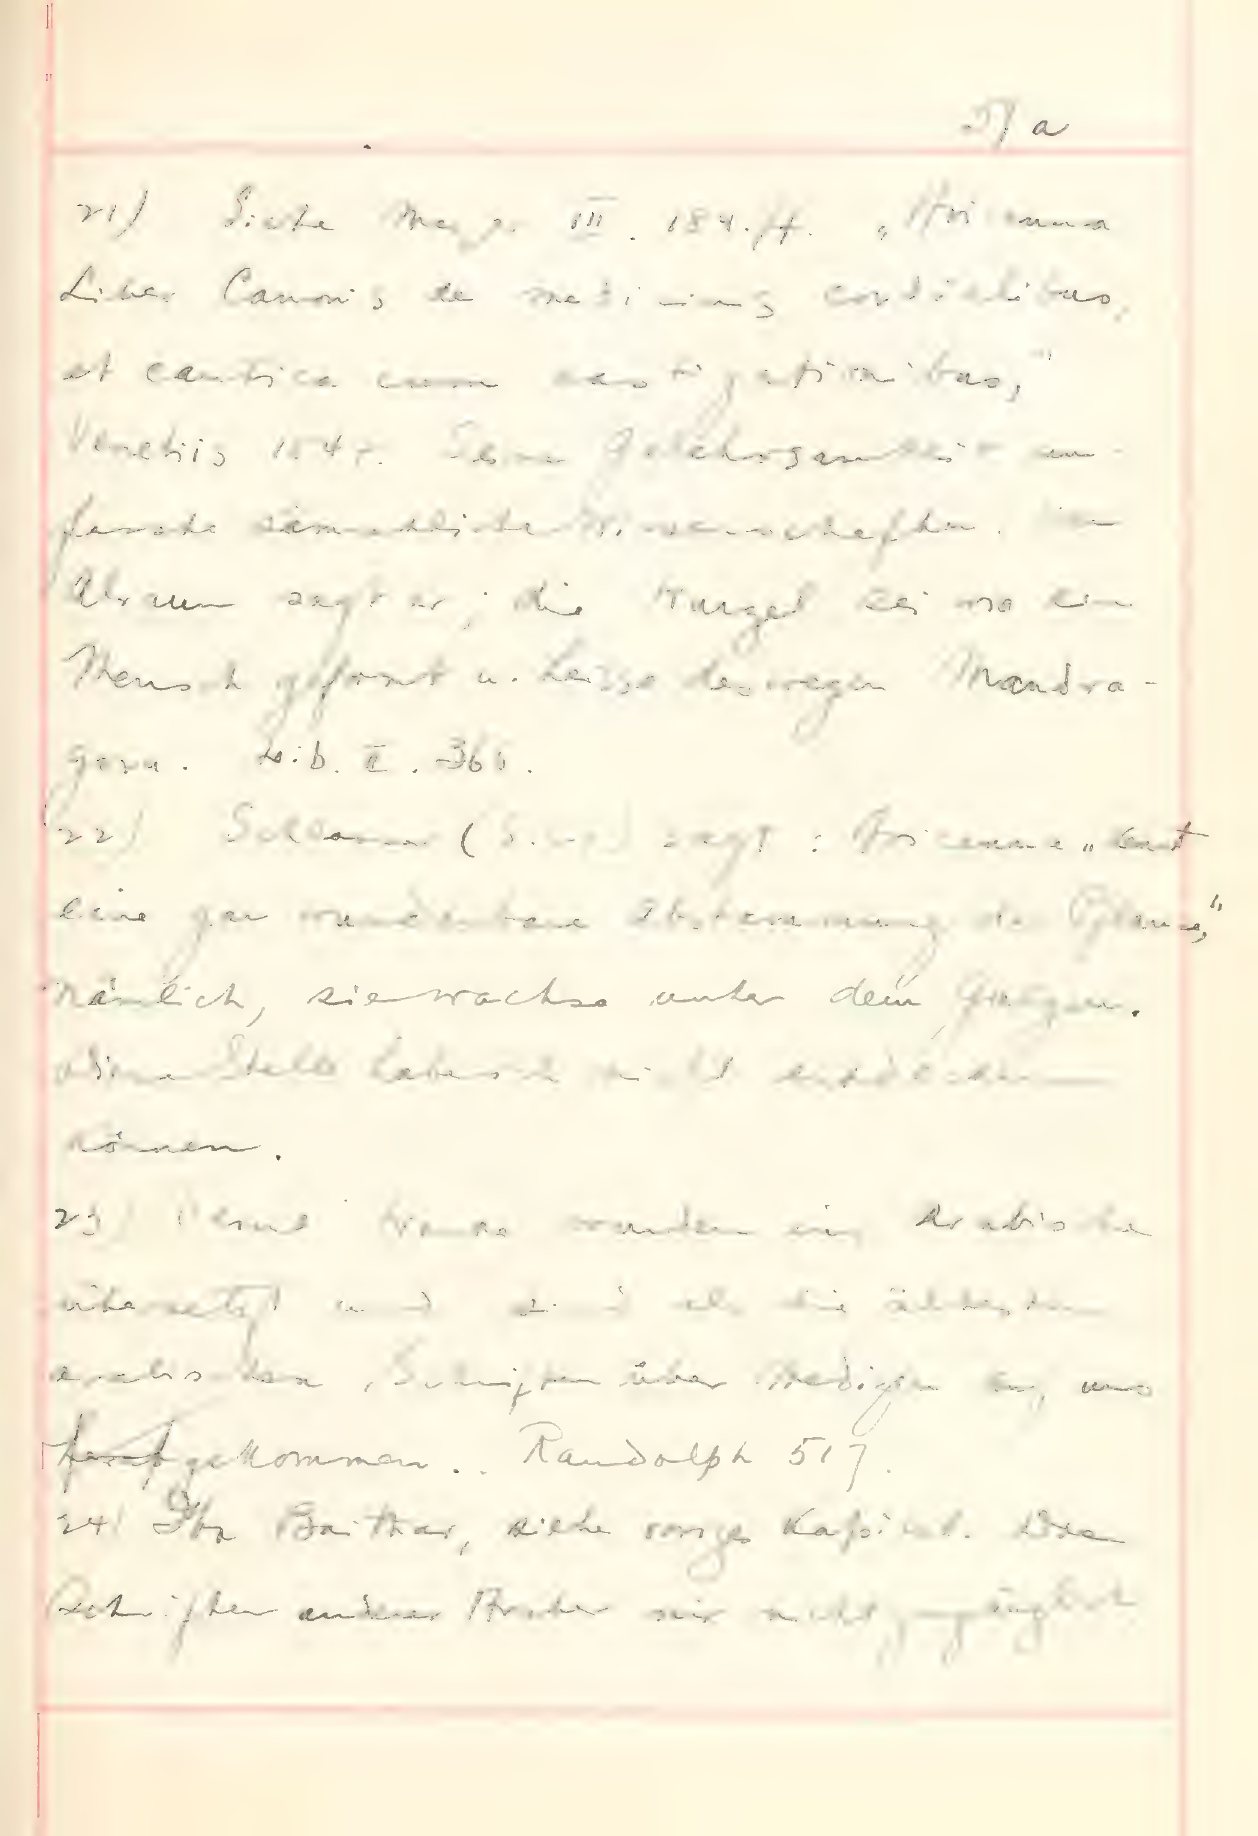 57 a
21) Siehe Meyer III. 184. ff. „Avicenna
Liber Canonis de medicinis cordialibus,
et cantica cum castigationibus,"
Venetiis Seine Gelehrsamkeit um-
fasste sämmtliche Wissenschaften. Von
Alraun sagt er, die Wurzel sei wie ein
Mensch geformt u. heisse deswegen Mandra-
gora. Lib. II. 365.
22) sagt: Avicenna „kent
eine gar wunderbare Abstammung der Pflanze,"
nämlich, sie wachse unter dem Galgen.
Diese Stelle habe ich nicht entdecken
können.
23) Seine Werke wurden ins Arabische
übersetzt und sind als die ältesten
arabischen Schriften über Medizin an uns
gekommen. Randolph 517.
24) Ibn Baithar, siehe voriges Kapitel. Die
Schriften anderer Araber mir nicht zugänglich